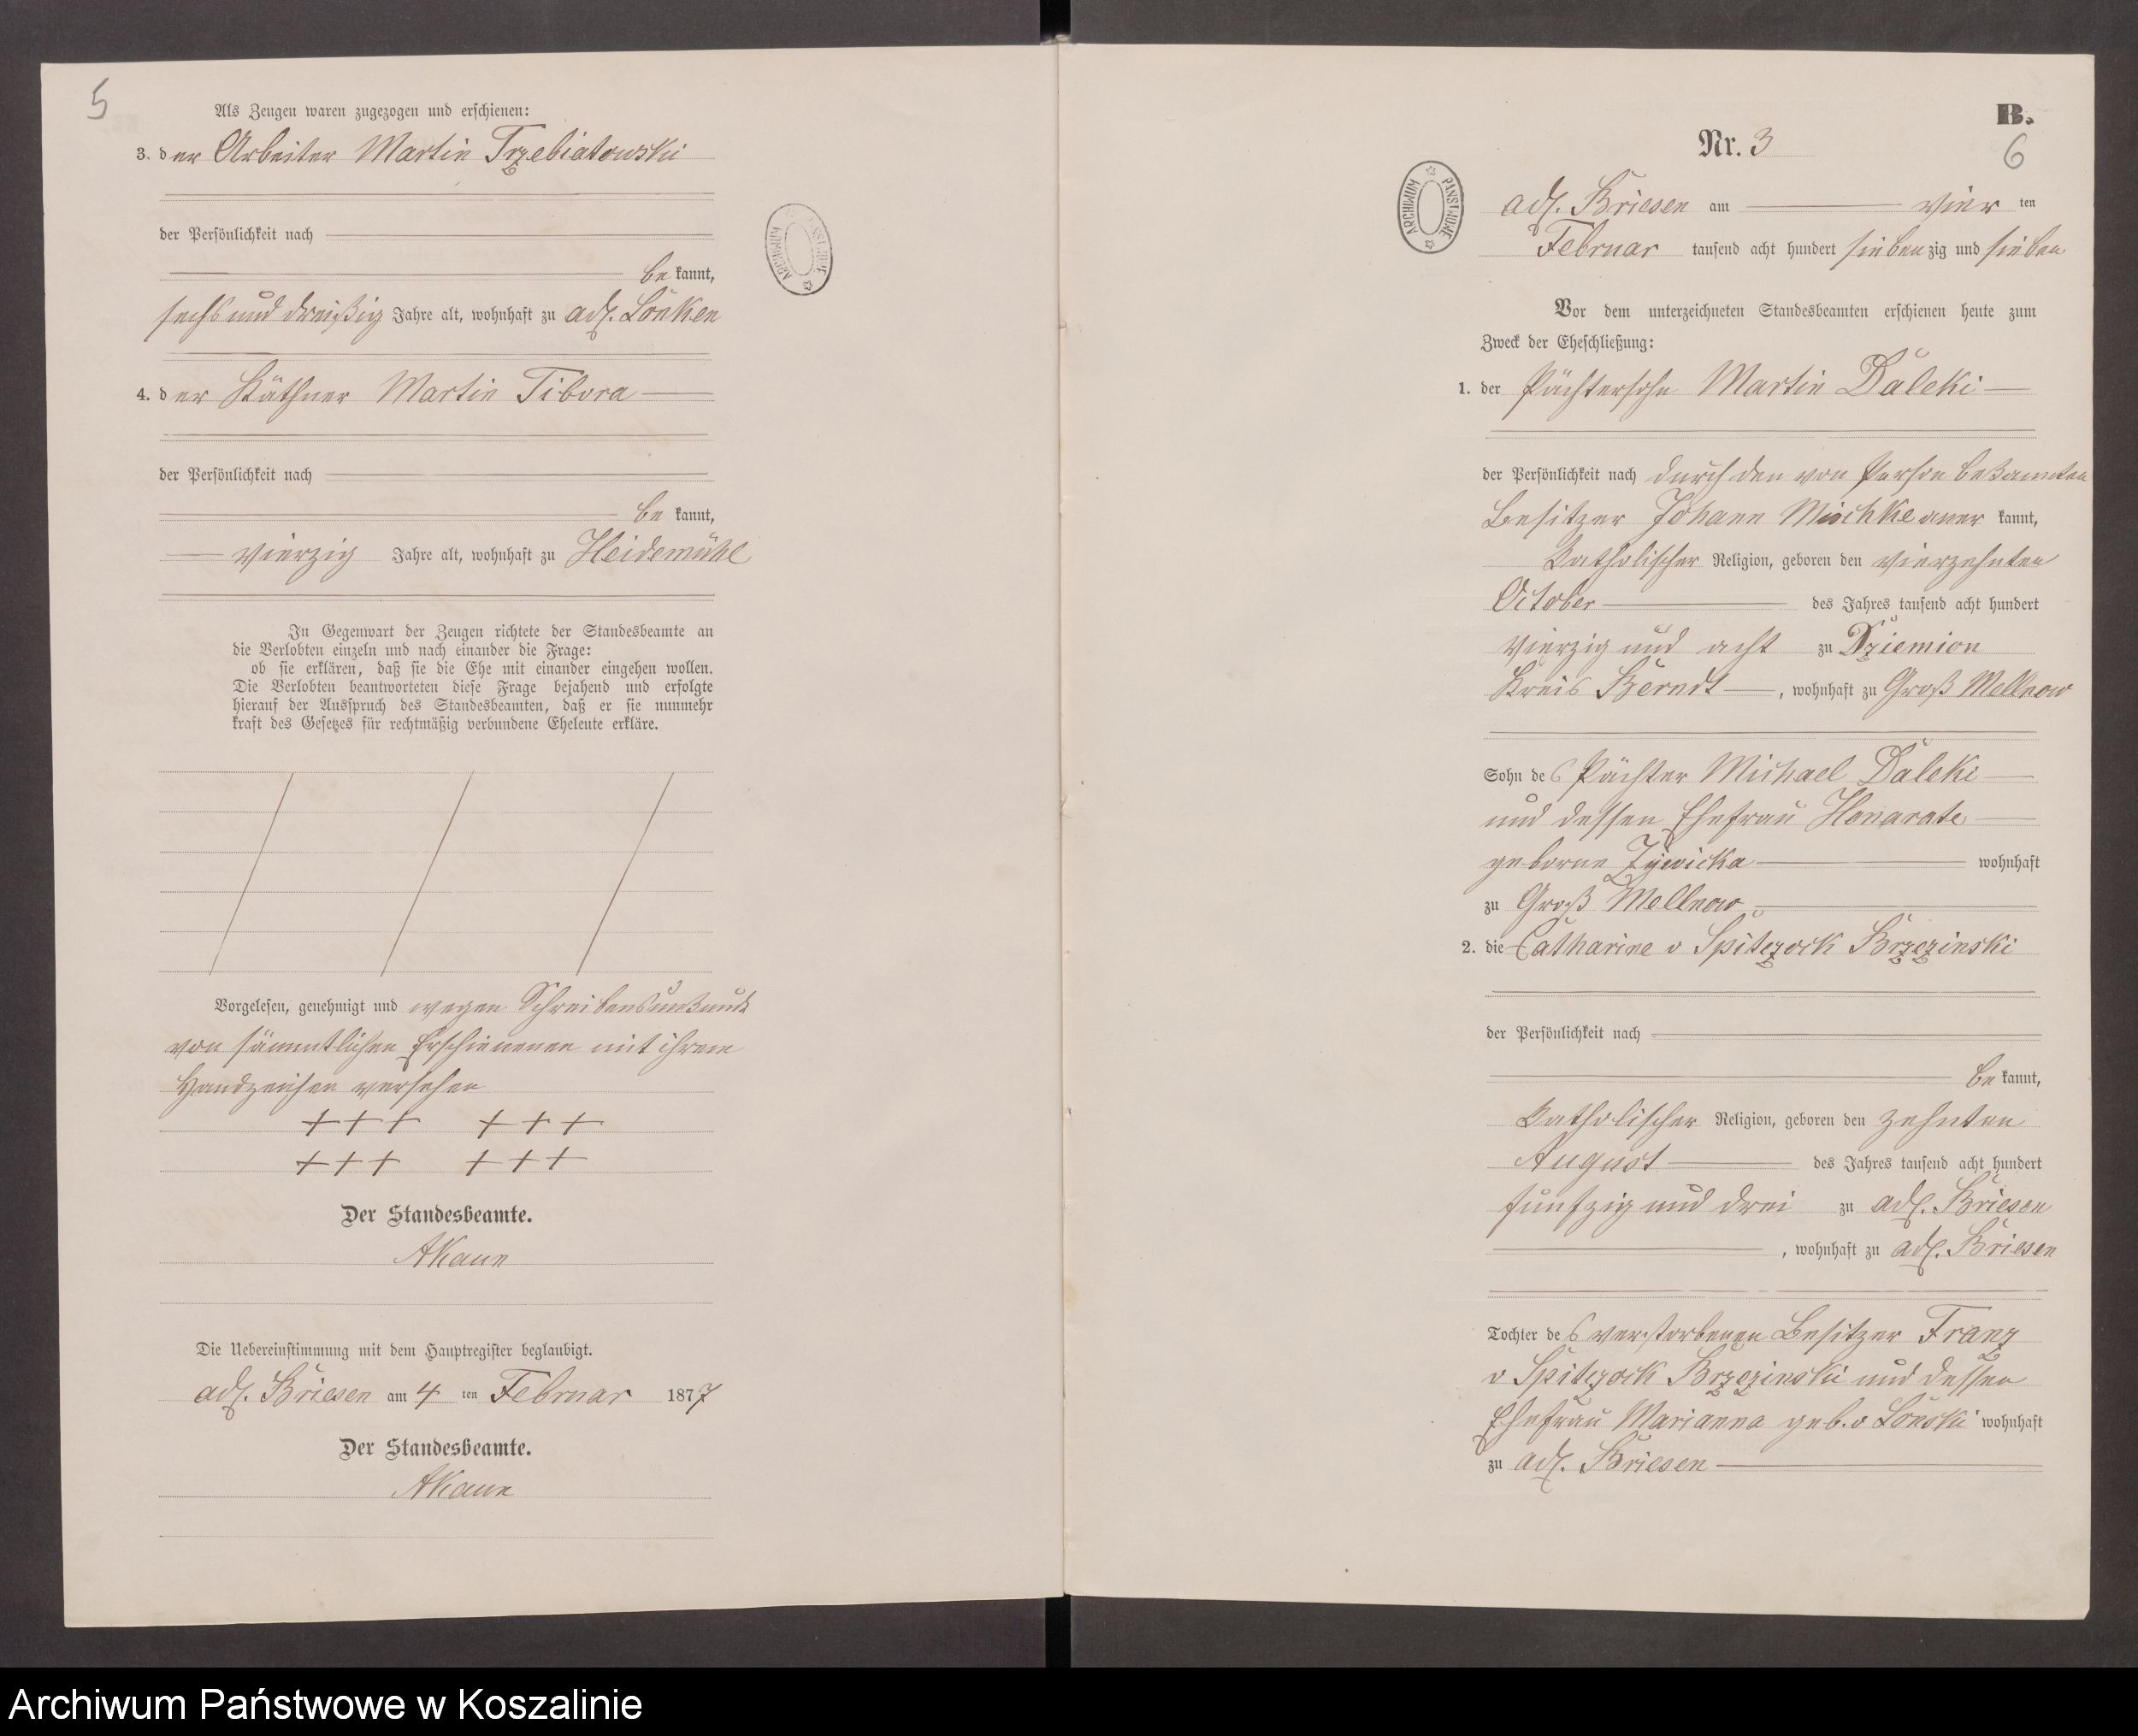 5
Als Zeugen waren zugezogen und erschienen:
3. der Arbeiter Martin Trzebiatowski
der Persönlichkeit nach
bekannt,
sechs und dreißig Jahre alt, wohnhaft zu adl. Lonken
4. der Käthner Martin Tibora
der Persönlichkeit nach
bekannt,
vierzig Jahre alt, wohnhaft zu Heidemühl
In Gegenwart der Zeugen richtete der Standesbeamte an
die Verlobten einzeln und nach einander die Frage:
ob sie erklären, daß sie die Ehe mit einander eingehen wollen.
Die Verlobten beantworteten diese Frage bejahend und erfolgte
hierauf der Ausspruch des Standesbeamten, daß er sie nunmehr
kraft des Gesetzes für rechtmäßig verbundene Eheleute erkläre.
Vorgelesen, genehmigt und wegen Schreibensunkunde
von sämmtlichen Erschienenen mit ihrem
Handzeichen versehen
+++ +++
+++ +++
Der Standesbeamte.
AKaun
Die Uebereinstimmung mit dem Hauptregister beglaubigt.
adl. Briesen am 4 ten Februar 1877
Der Standesbeamte.
AKaun
ARCHIWUM PAŃSTWOWE
B.
Nr. 3
6
ARCHIWUM PAŃSTWOWE
adl. Briesen am vier ten
Februar tausend acht hundert siebenzig und sieben
Vor dem unterzeichneten Standesbeamten erschienen heute zum
Zweck der Eheschließung:
1. der Pächtersohn Martin Daleki
der Persönlichkeit nach durch den von Person bekannten
Besitzer Johann Mischke anerkannt,
Katholischer Religion, geboren den vierzehnten
October des Jahres tausend acht hundert
vierzig und acht zu Dziemion
Kreis Berndt, wohnhaft zu Groß Mellnow
Sohn des Pächter Michael Daleki
und dessen Ehefrau Honarate
geborne Zÿwicka wohnhaft
zu Groß Mellnow
2. die Catharine v Spiczock Brzezinski
der Persönlichkeit nach
bekannt,
Katholischer Religion, geboren den zehnten
August des Jahres tausend acht hundert
funfzig und drei zu adl. Briesen
, wohnhaft zu adl. Briesen
Tochter des verstorbenen Besitzer Franz
v Spiczock Brzezinski und dessen
Ehefrau Marianna geb. v Lonski wohnhaft
zu adl. Briesen
Archiwum Państwowe w Koszalinie